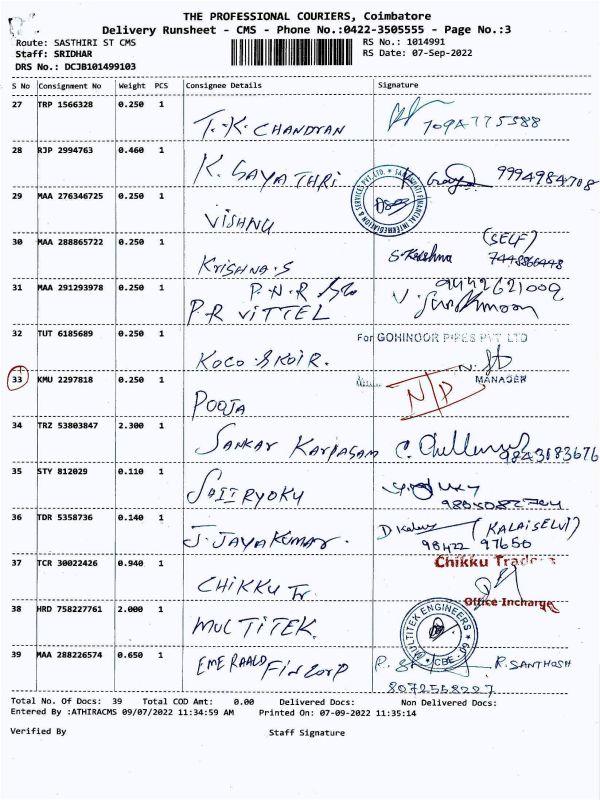 THE PROFESSIONAL COURIERS, Coimbatore
Delivery Runsheet - CMS - Phone No.:0422-3505555 - Page No.:3
Route: SASTHIRI ST CMS RS No.: 1014991
Staff: SRIDHAR RS Date: 07-Sep-2022
DRS No.: DCJB101499103
S No Consignment No Weight PCS Consignee Details Signature
27 TRP 1566328 0.250 1 T.K. CHANDRAN
28 RJP 2994763 0.460 1 K. GAYATHRI 9994984708
29 MAA 276346725 0.250 1 VISHNU
30 MAA 288865722 0.250 1 Krishna.S S.Krishna (SELF)
31 MAA 291293978 0.250 1 P.N.R 9442621009
P.R VITTEL
32 TUT 6185689 0.250 1 For GOHINOOR PIPES PVT LTD
MANAGER
33 KMU 2297818 0.250 1 POOJA N/D
34 TRZ 53803847 2.300 1 SANKAR 9843183676
35 STY 812029 0.110 1
36 TDR 5358736 0.140 1 J. JAYAKUMAR. (KALAISELVI)
98422 97650
37 TCR 30022426 0.940 1 CHIKKU Tr. Chikku Traders
Office Incharge
38 HRD 758227761 2.000 1 MULTITEK. MULTITEK ENGINEERS CBE
39 MAA 288226574 0.650 1 EMERAALD FINCORP R. SANTHOSH
8072558227
Total No. Of Docs: 39 Total COD Amt: 0.00 Delivered Docs: Non Delivered Docs:
Entered By :ATHIRACMS 09/07/2022 11:34:59 AM Printed On: 07-09-2022 11:35:14
Verified By Staff Signature